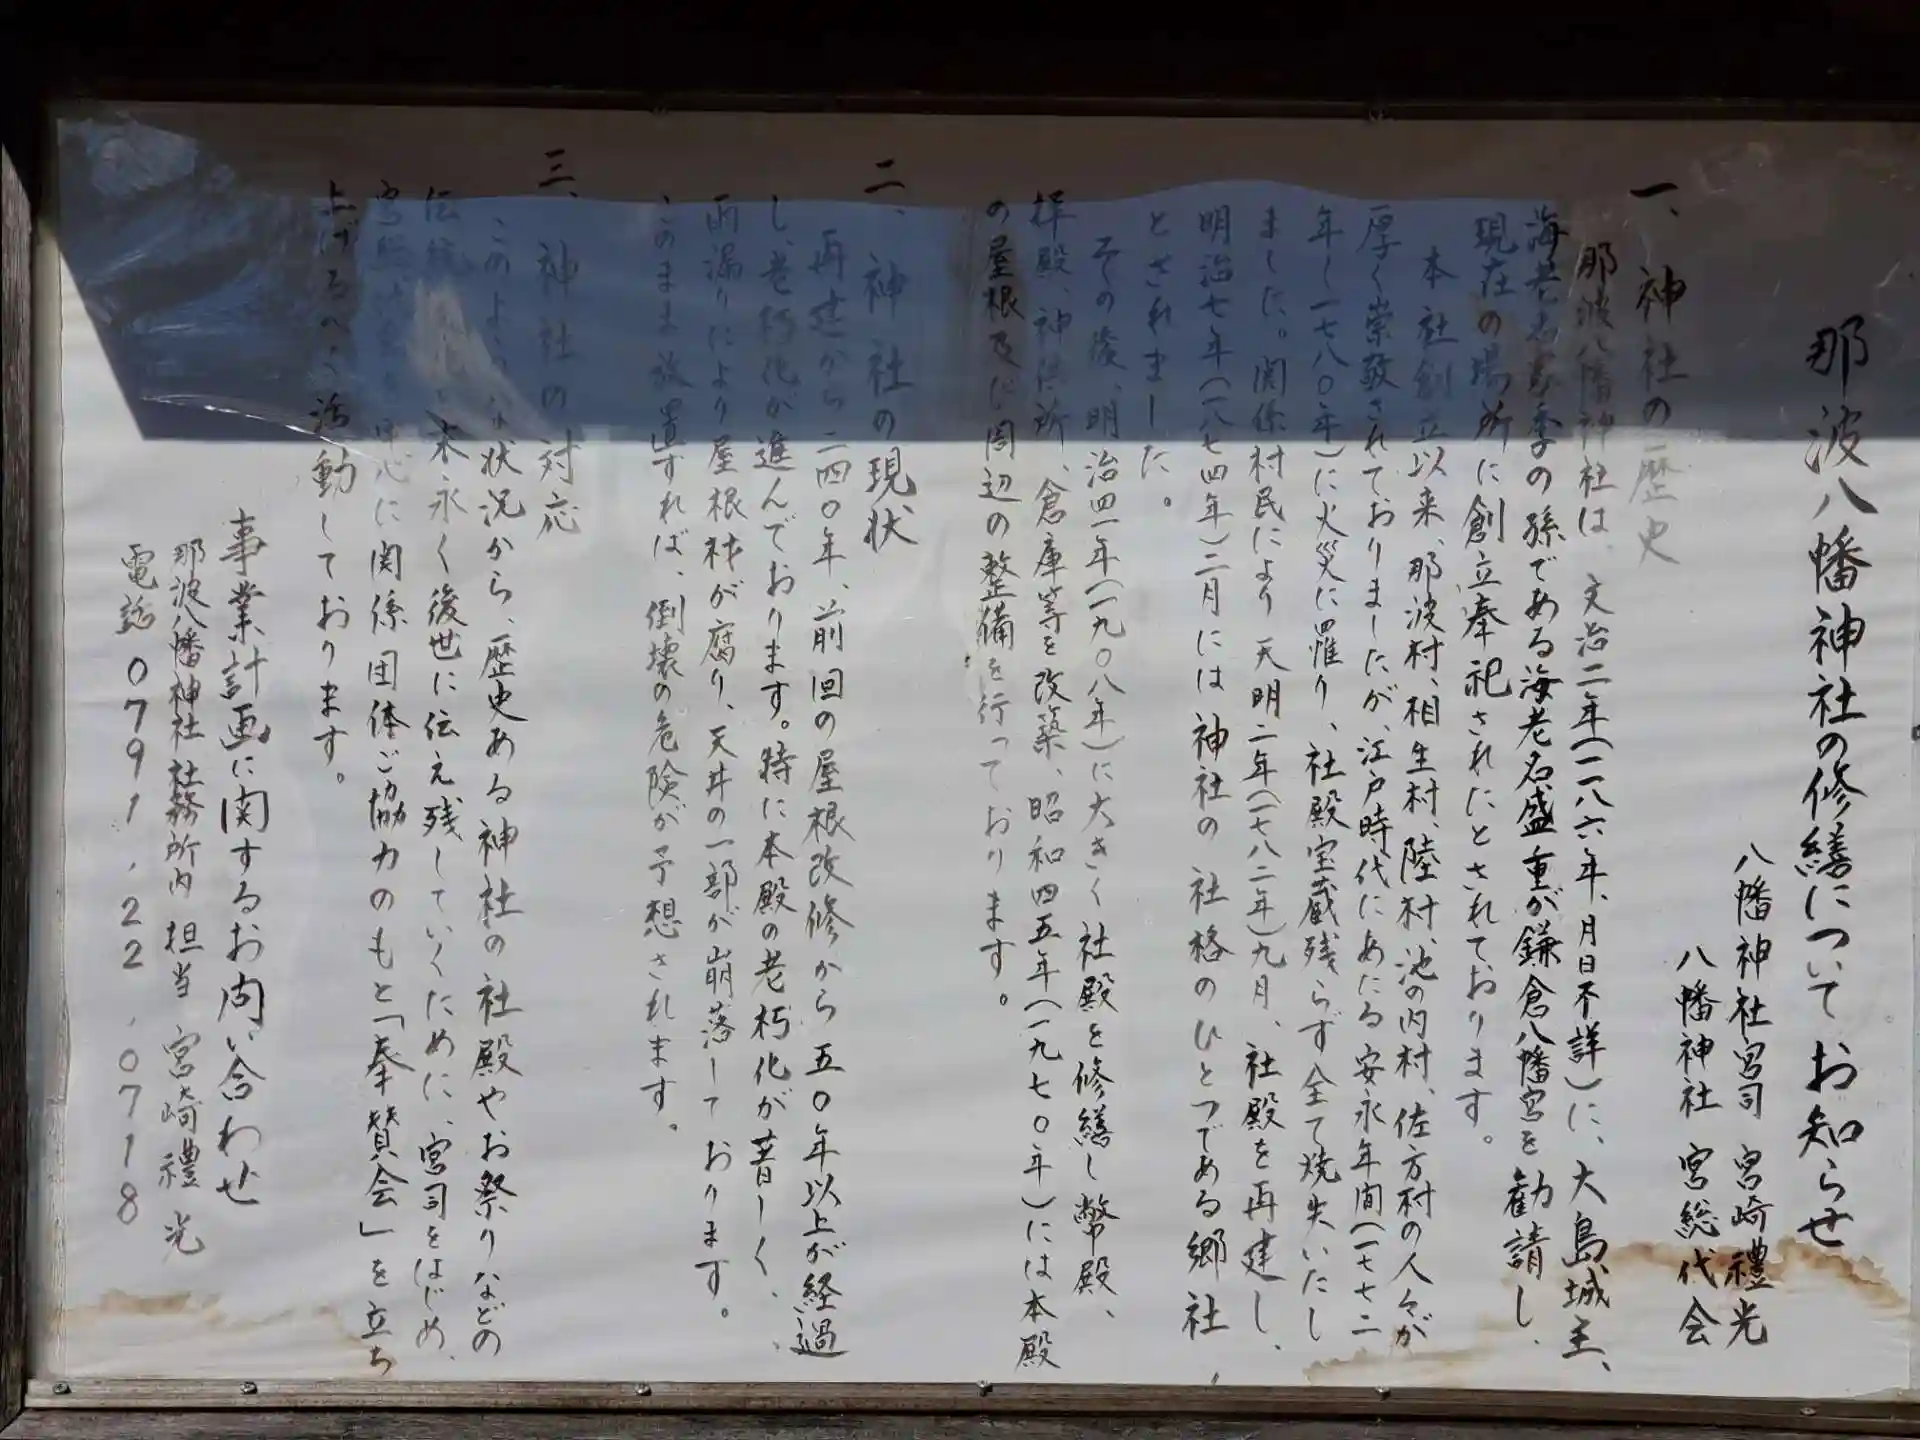 那波八幡神社の修繕についてお知らせ
八幡神社宮司 宮崎禮光
八幡神社 宮総代会
一、神社の歴史
那波八幡神社は、文治二年(一一八六年、月日不詳)に、大島城主、
海老名家季の孫である海老名盛重が鎌倉八幡宮を勧請し、
現在の場所に創立奉祀されたとされております。
本社創立以来、那波村、相生村、陸村、池の内村、佐方村の人々が
厚く崇敬されておりましたが、江戸時代にあたる安永年間(一七七二
年〜一七八〇年)に火災に罹り、社殿宝蔵残らず全て焼失いたし
ました。関係村民により天明二年(一七八二年)九月、社殿を再建し、
明治七年(一八七四年)二月には神社の社格のひとつである郷社、
とされました。
その後、明治四一年(一九〇八年)に大きく社殿を修繕し幣殿、
拝殿、神供所、倉庫等を改築、昭和四五年(一九七〇年)には本殿
の屋根及び周辺の整備を行っております。
二、神社の現状
再建から二四〇年、前回の屋根改修から五〇年以上が経過
し、老朽化が進んでおります。特に本殿の老朽化が著しく、
雨漏りにより屋根材が腐り、天井の一部が崩落しております。
このまま放置すれば、倒壊の危険が予想されます。
三、神社の対応
このような状況から、歴史ある神社の社殿やお祭りなどの
伝統文化い末永く後世に伝え残していくために、宮司をはじめ、
宮総代会を中心に関係団体ご協力のもと「奉賛会」を立ち
上げるべく活動しております。
事業計画に関するお問い合わせ
那波八幡神社 社務所内 担当 宮崎禮光
電話 0791,22,0718